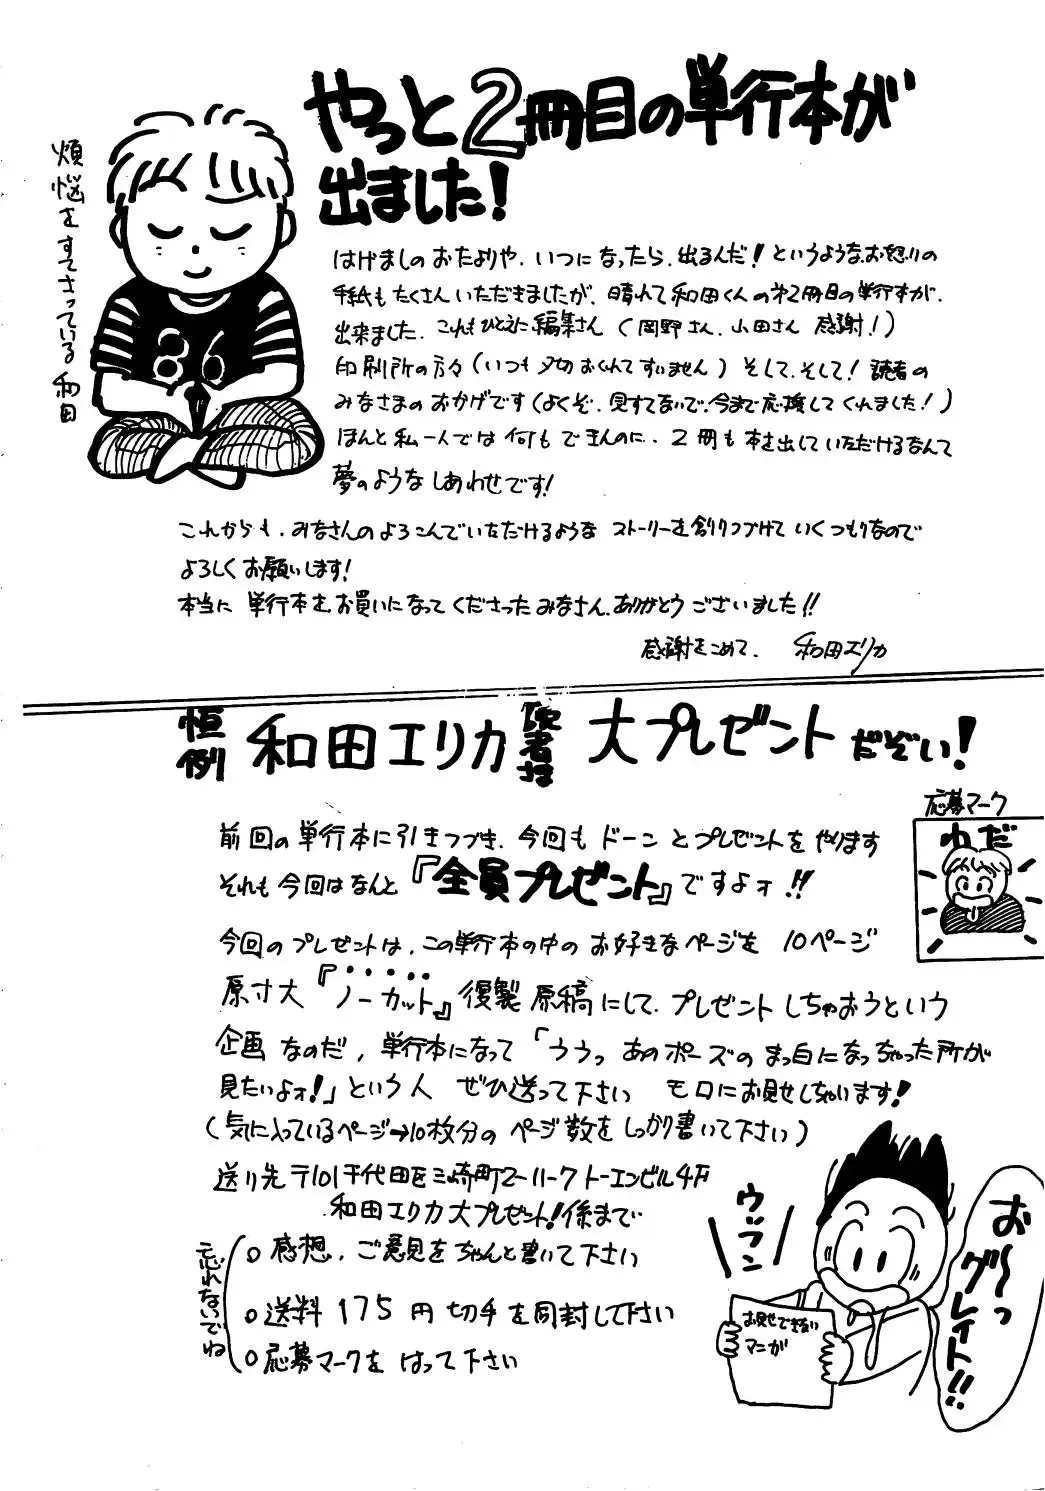 やっと2冊目の単行本が
出ました!
煩悩をすてさっている和田
はげましのおたよりや、いつになったら、出るんだ!というようなお怒りの
手紙もたくさんいただきましたが、晴れて和田くんの第2冊目の単行本が、
出来ました。これもひとえに編集さん(岡野さん、山田さん感謝!)
印刷所の方々(いつも〆切おくれてすいません)そして、そして!読者の
みなさまのおかげです(よくぞ、見すてないで、今まで応援してくれました!)
ほんと私一人では何もできんのに、2冊も本を出していただけるなんて
夢のようなしあわせです!
これからも、みなさんのよろこんでいただけるような ストーリーを創りつづけていくつもりなので
よろしくお願いします!
本当に単行本をお買いになってくださったみなさん、ありがとうございました!!
感謝をこめて、 和田エリカ
恒例 和田エリカ 読者さま 大プレゼントだぞい!
応募マーク
わだ
前回の単行本に引きつづき、今回もドーンとプレゼントをやります
それも今回はなんと『全員プレゼント』ですよォ!!
今回のプレゼントは、この単行本の中のお好きなページを 10ページ
原寸大『ノーカット』復製原稿にして、プレゼントしちゃおうという
企画なのだ、単行本になって「ううっ あのポーズのまっ白になっちゃった所が
見たいよォ!」という人 ぜひ送って下さい モロにお見せしちゃいます!
(気に入っているページ→10枚分のページ数をしっかり書いて下さい)
送り先〒101千代田区三崎町2-11-7トーエンビル4F
和田エリカ大プレゼント!係まで
忘れないでね
○感想、ご意見をちゃんと書いて下さい
○送料175円切手を同封して下さい
○応募マークをはって下さい
ウッフン
お見せできないマンガ
お〜っグレイト!!